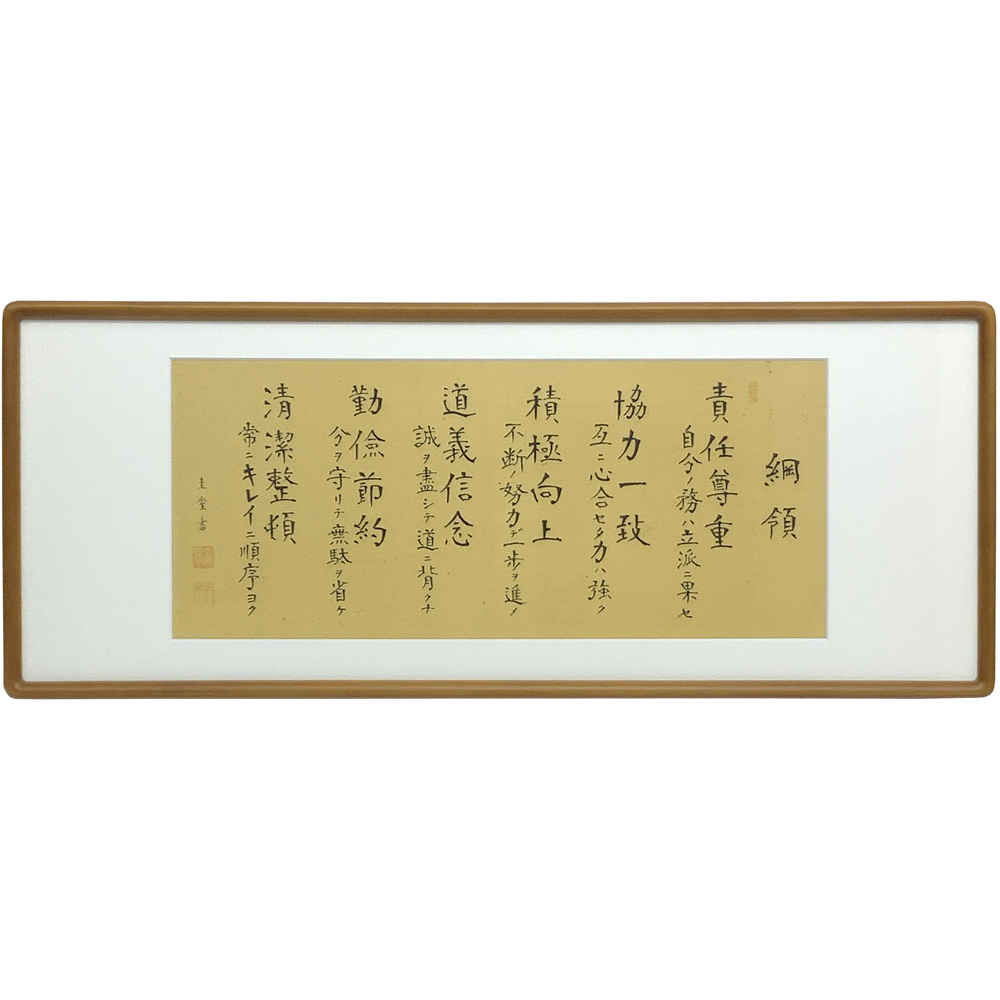 綱領
責任尊重
自分ノ務ハ立派ニ果セ
協力一致
互ニ心合セタ力ハ強ク
積極向上
不断ノ努力デ一歩ヲ進メ
道義信念
誠ヲ盡シテ道ニ背クナ
勤倹節約
分ヲ守リテ無駄ヲ省ケ
清潔整頓
常ニキレイニ順序ヨク
圭堂書